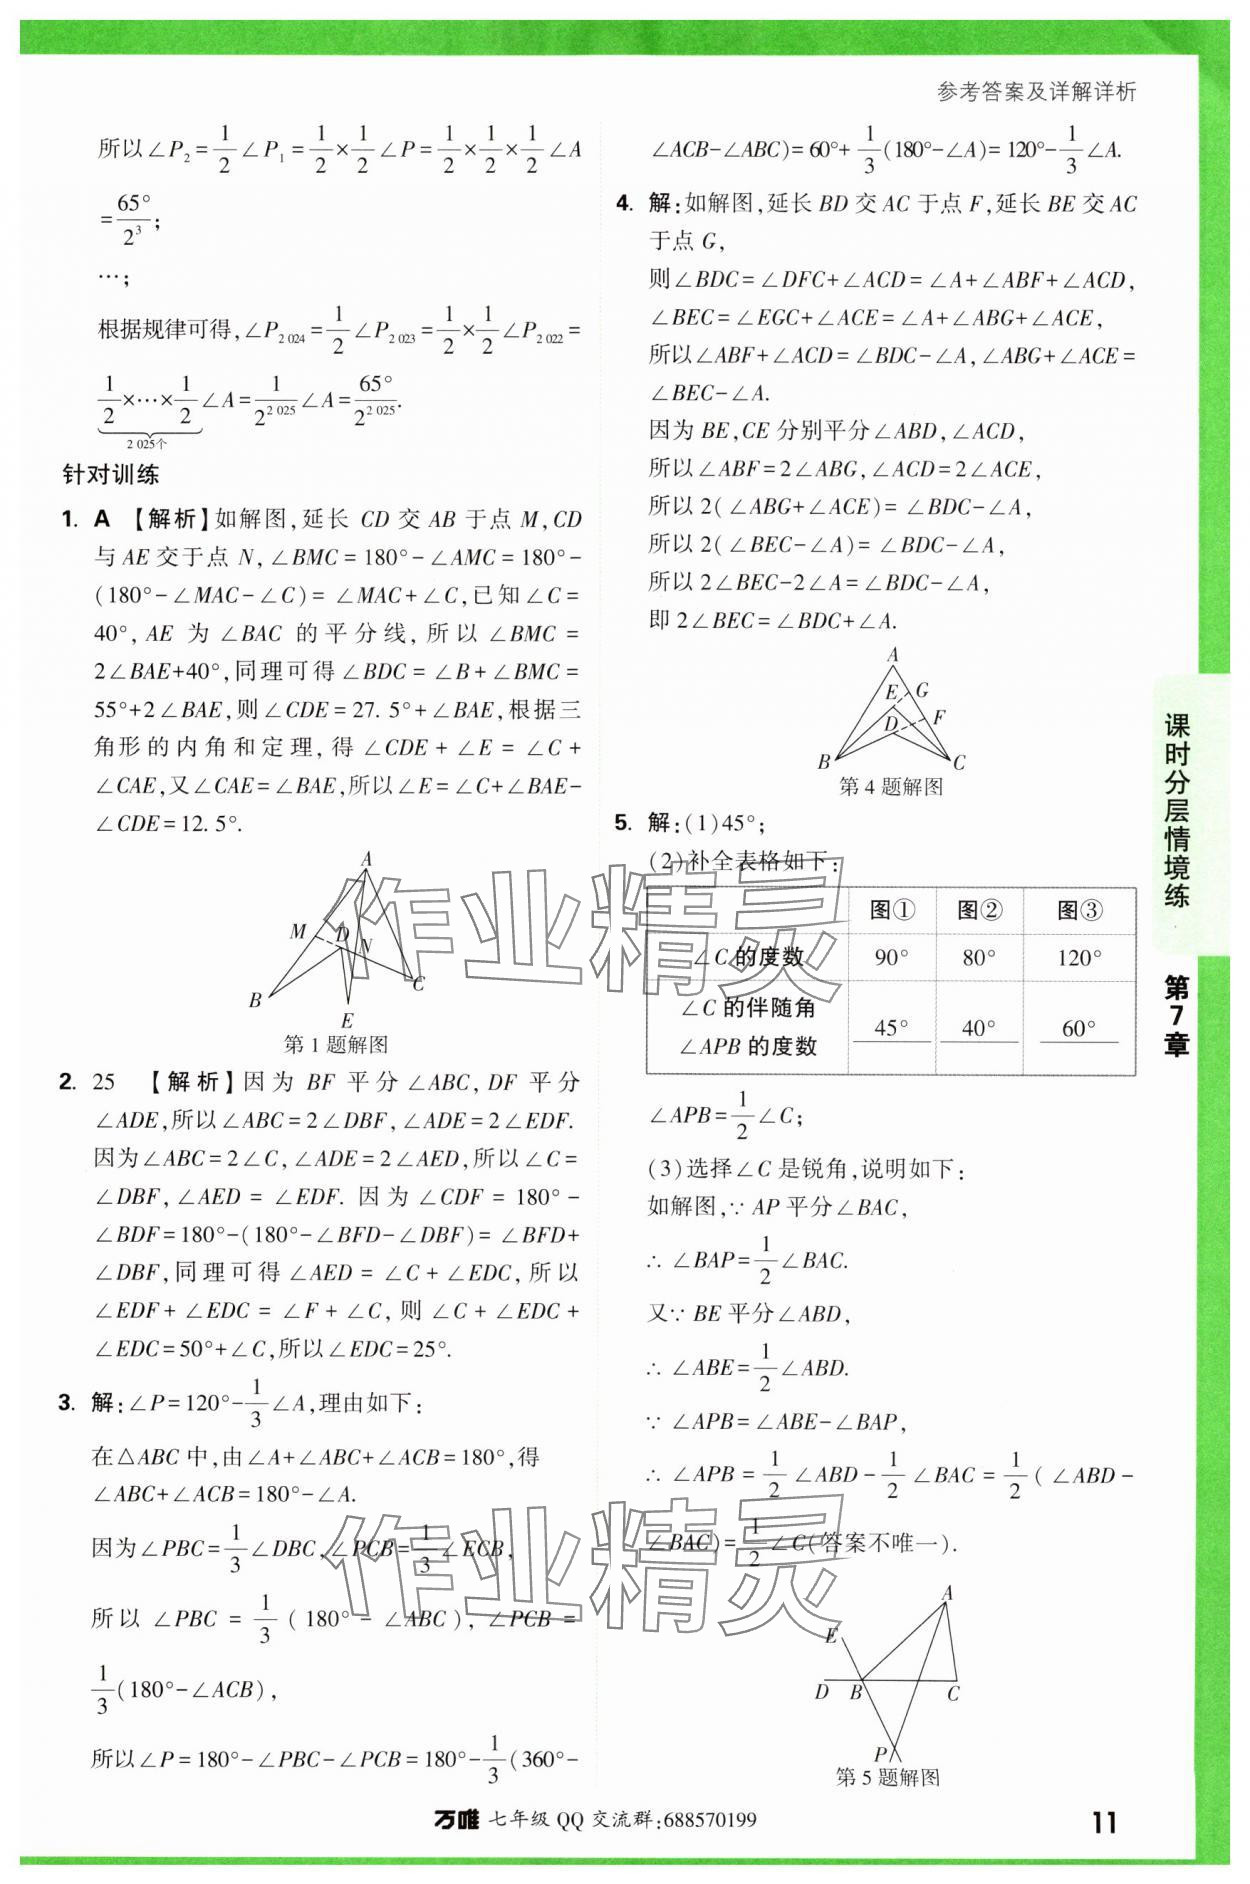 参考答案及详解详析
所以∠P₂=1/2∠P₁=1/2×1/2∠P=1/2×1/2×1/2∠A
=65°/2³;
…;
根据规律可得,∠P₂ ₀₂₄=1/2∠P₂ ₀₂₃=1/2×1/2∠P₂ ₀₂₂=
1/2×…×1/2∠A=1/2^(2 025)∠A=65°/2^(2 025).
2 025个
针对训练
1. A 【解析】如解图,延长 CD 交 AB 于点 M,CD
与 AE 交于点 N,∠BMC=180°-∠AMC=180°-
(180°-∠MAC-∠C)=∠MAC+∠C,已知∠C=
40°,AE 为∠BAC 的平分线,所以∠BMC=
2∠BAE+40°,同理可得∠BDC=∠B+∠BMC=
55°+2∠BAE,则∠CDE=27.5°+∠BAE,根据三
角形的内角和定理,得∠CDE+∠E=∠C+
∠CAE,又∠CAE=∠BAE,所以∠E=∠C+∠BAE-
∠CDE=12.5°.
A
M
D
N
C
B
E
第1题解图
2. 25 【解析】因为 BF 平分∠ABC,DF 平分
∠ADE,所以∠ABC=2∠DBF,∠ADE=2∠EDF.
因为∠ABC=2∠C,∠ADE=2∠AED,所以∠C=
∠DBF,∠AED=∠EDF.因为∠CDF=180°-
∠BDF=180°-(180°-∠BFD-∠DBF)=∠BFD+
∠DBF,同理可得∠AED=∠C+∠EDC,所以
∠EDF+∠EDC=∠F+∠C,则∠C+∠EDC+
∠EDC=50°+∠C,所以∠EDC=25°.
3. 解:∠P=120°-1/3∠A,理由如下:
在△ABC中,由∠A+∠ABC+∠ACB=180°,得
∠ABC+∠ACB=180°-∠A.
因为∠PBC=1/3∠DBC,∠PCB=1/3∠ECB,
所以∠PBC=1/3(180°-∠ABC),∠PCB=
1/3(180°-∠ACB),
所以∠P=180°-∠PBC-∠PCB=180°-1/3(360°-
∠ACB-∠ABC)=60°+1/3(180°-∠A)=120°-1/3∠A.
4. 解:如解图,延长 BD 交 AC 于点 F,延长 BE 交 AC
于点 G,
则∠BDC=∠DFC+∠ACD=∠A+∠ABF+∠ACD,
∠BEC=∠EGC+∠ACE=∠A+∠ABG+∠ACE,
所以∠ABF+∠ACD=∠BDC-∠A,∠ABG+∠ACE=
∠BEC-∠A.
因为 BE,CE 分别平分∠ABD,∠ACD,
所以∠ABF=2∠ABG,∠ACD=2∠ACE,
所以 2(∠ABG+∠ACE)=∠BDC-∠A,
所以 2(∠BEC-∠A)=∠BDC-∠A,
所以 2∠BEC-2∠A=∠BDC-∠A,
即 2∠BEC=∠BDC+∠A.
A
E G
D F
B C
第4题解图
5. 解:(1)45°;
(2)补全表格如下:
图① 图② 图③
∠C的度数 90° 80° 120°
∠C的伴随角
∠APB的度数 45° 40° 60°
∠APB=1/2∠C;
(3)选择∠C是锐角,说明如下:
如解图,∵AP平分∠BAC,
∴∠BAP=1/2∠BAC.
又∵BE平分∠ABD,
∴∠ABE=1/2∠ABD.
∵∠APB=∠ABE-∠BAP,
∴∠APB=1/2∠ABD-1/2∠BAC=1/2(∠ABD-
∠BAC)=1/2∠C(答案不唯一).
A
E
D B C
P
第5题解图
课时分层情境练
第7章
作业精灵
作业精灵
万唯 七年级 QQ 交流群:688570199
11